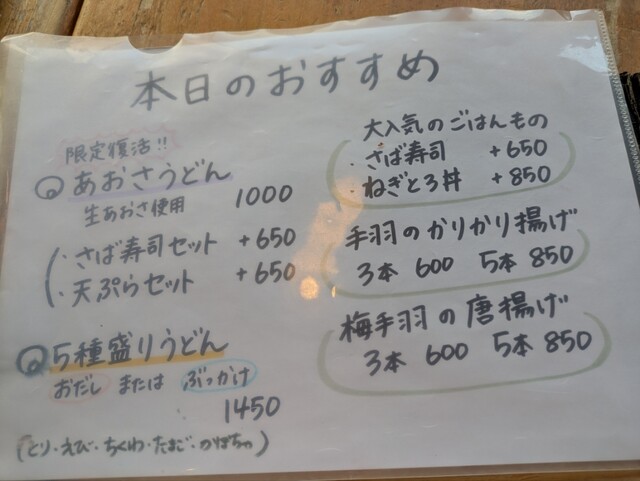 本日のおすすめ
限定復活!!
あおさうどん
生あおさ使用 1000
・さば寿司セット +650
・天ぷらセット +650
5種盛りうどん
おだし または ぶっかけ
1450
(とり・えび・ちくわ・たまご・かぼちゃ)
大人気のごはんもの
・さば寿司 +650
・ねぎとろ丼 +850
手羽のかりかり揚げ
3本 600 5本 850
梅手羽の唐揚げ
3本 600 5本 850